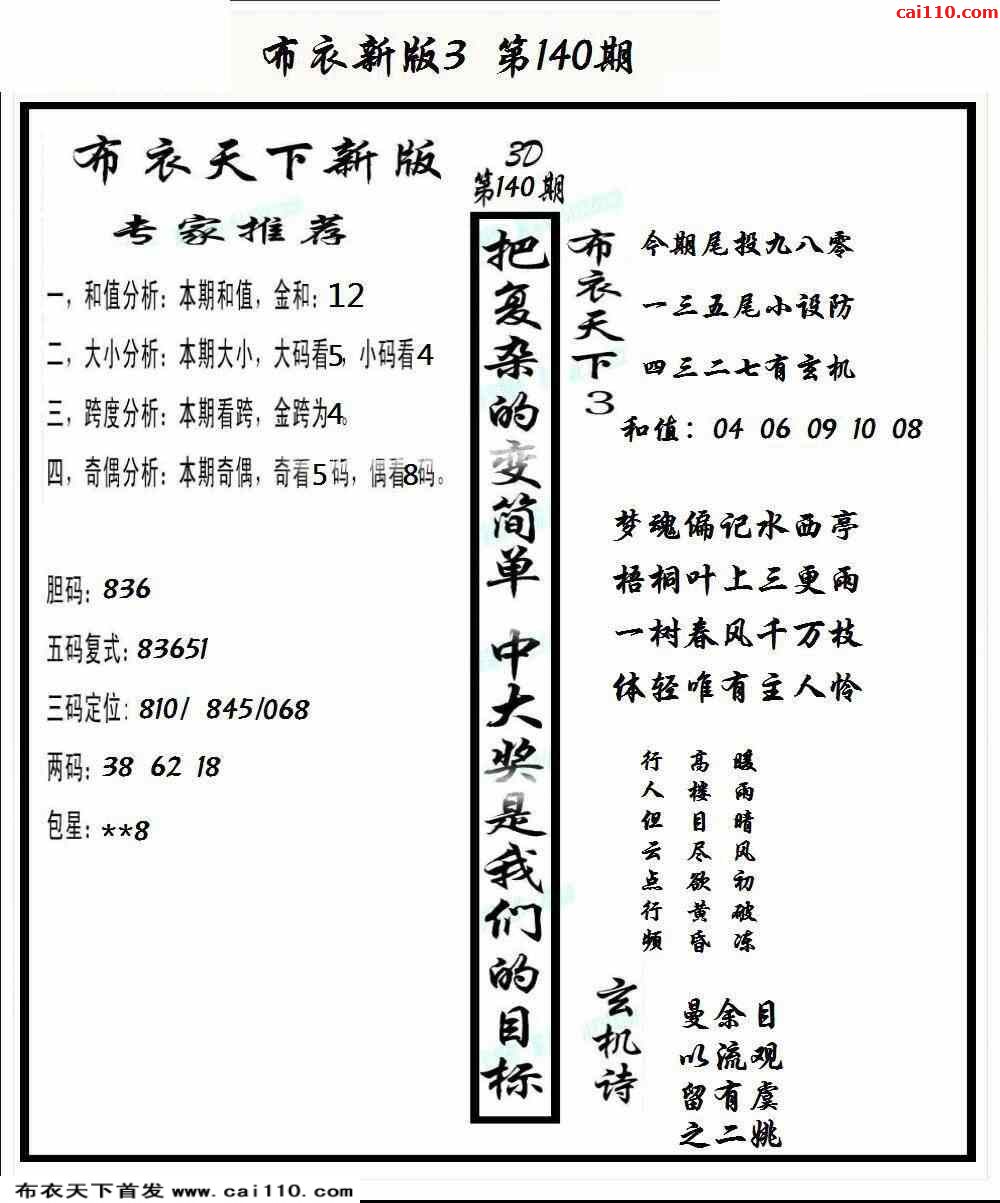 cai110.com
布衣新版3 第140期
布衣天下新版
专家推荐
一，和值分析：本期和值，金和：12
二，大小分析：本期大小，大码看5，小码看4
三，跨度分析：本期看跨，金跨为4。
四，奇偶分析：本期奇偶，奇看5码，偶看8码。
胆码：836
五码复式：83651
三码定位：810/ 845/068
两码：38 62 18
包星：**8
3D
第140期
把复杂的变简单 中大奖是我们的目标
布衣天下3
今期尾投九八零
一三五尾小设防
四三二七有玄机
和值：04 06 09 10 08
梦魂偏记水西亭
梧桐叶上三更雨
一树春风千万枝
体轻唯有主人怜
暖雨晴风初破冻
高楼目尽欲黄昏
行人但云点行频
玄机诗
目观虞姚
余流有二
曼以留之
布衣天下首发 www.cai110.com